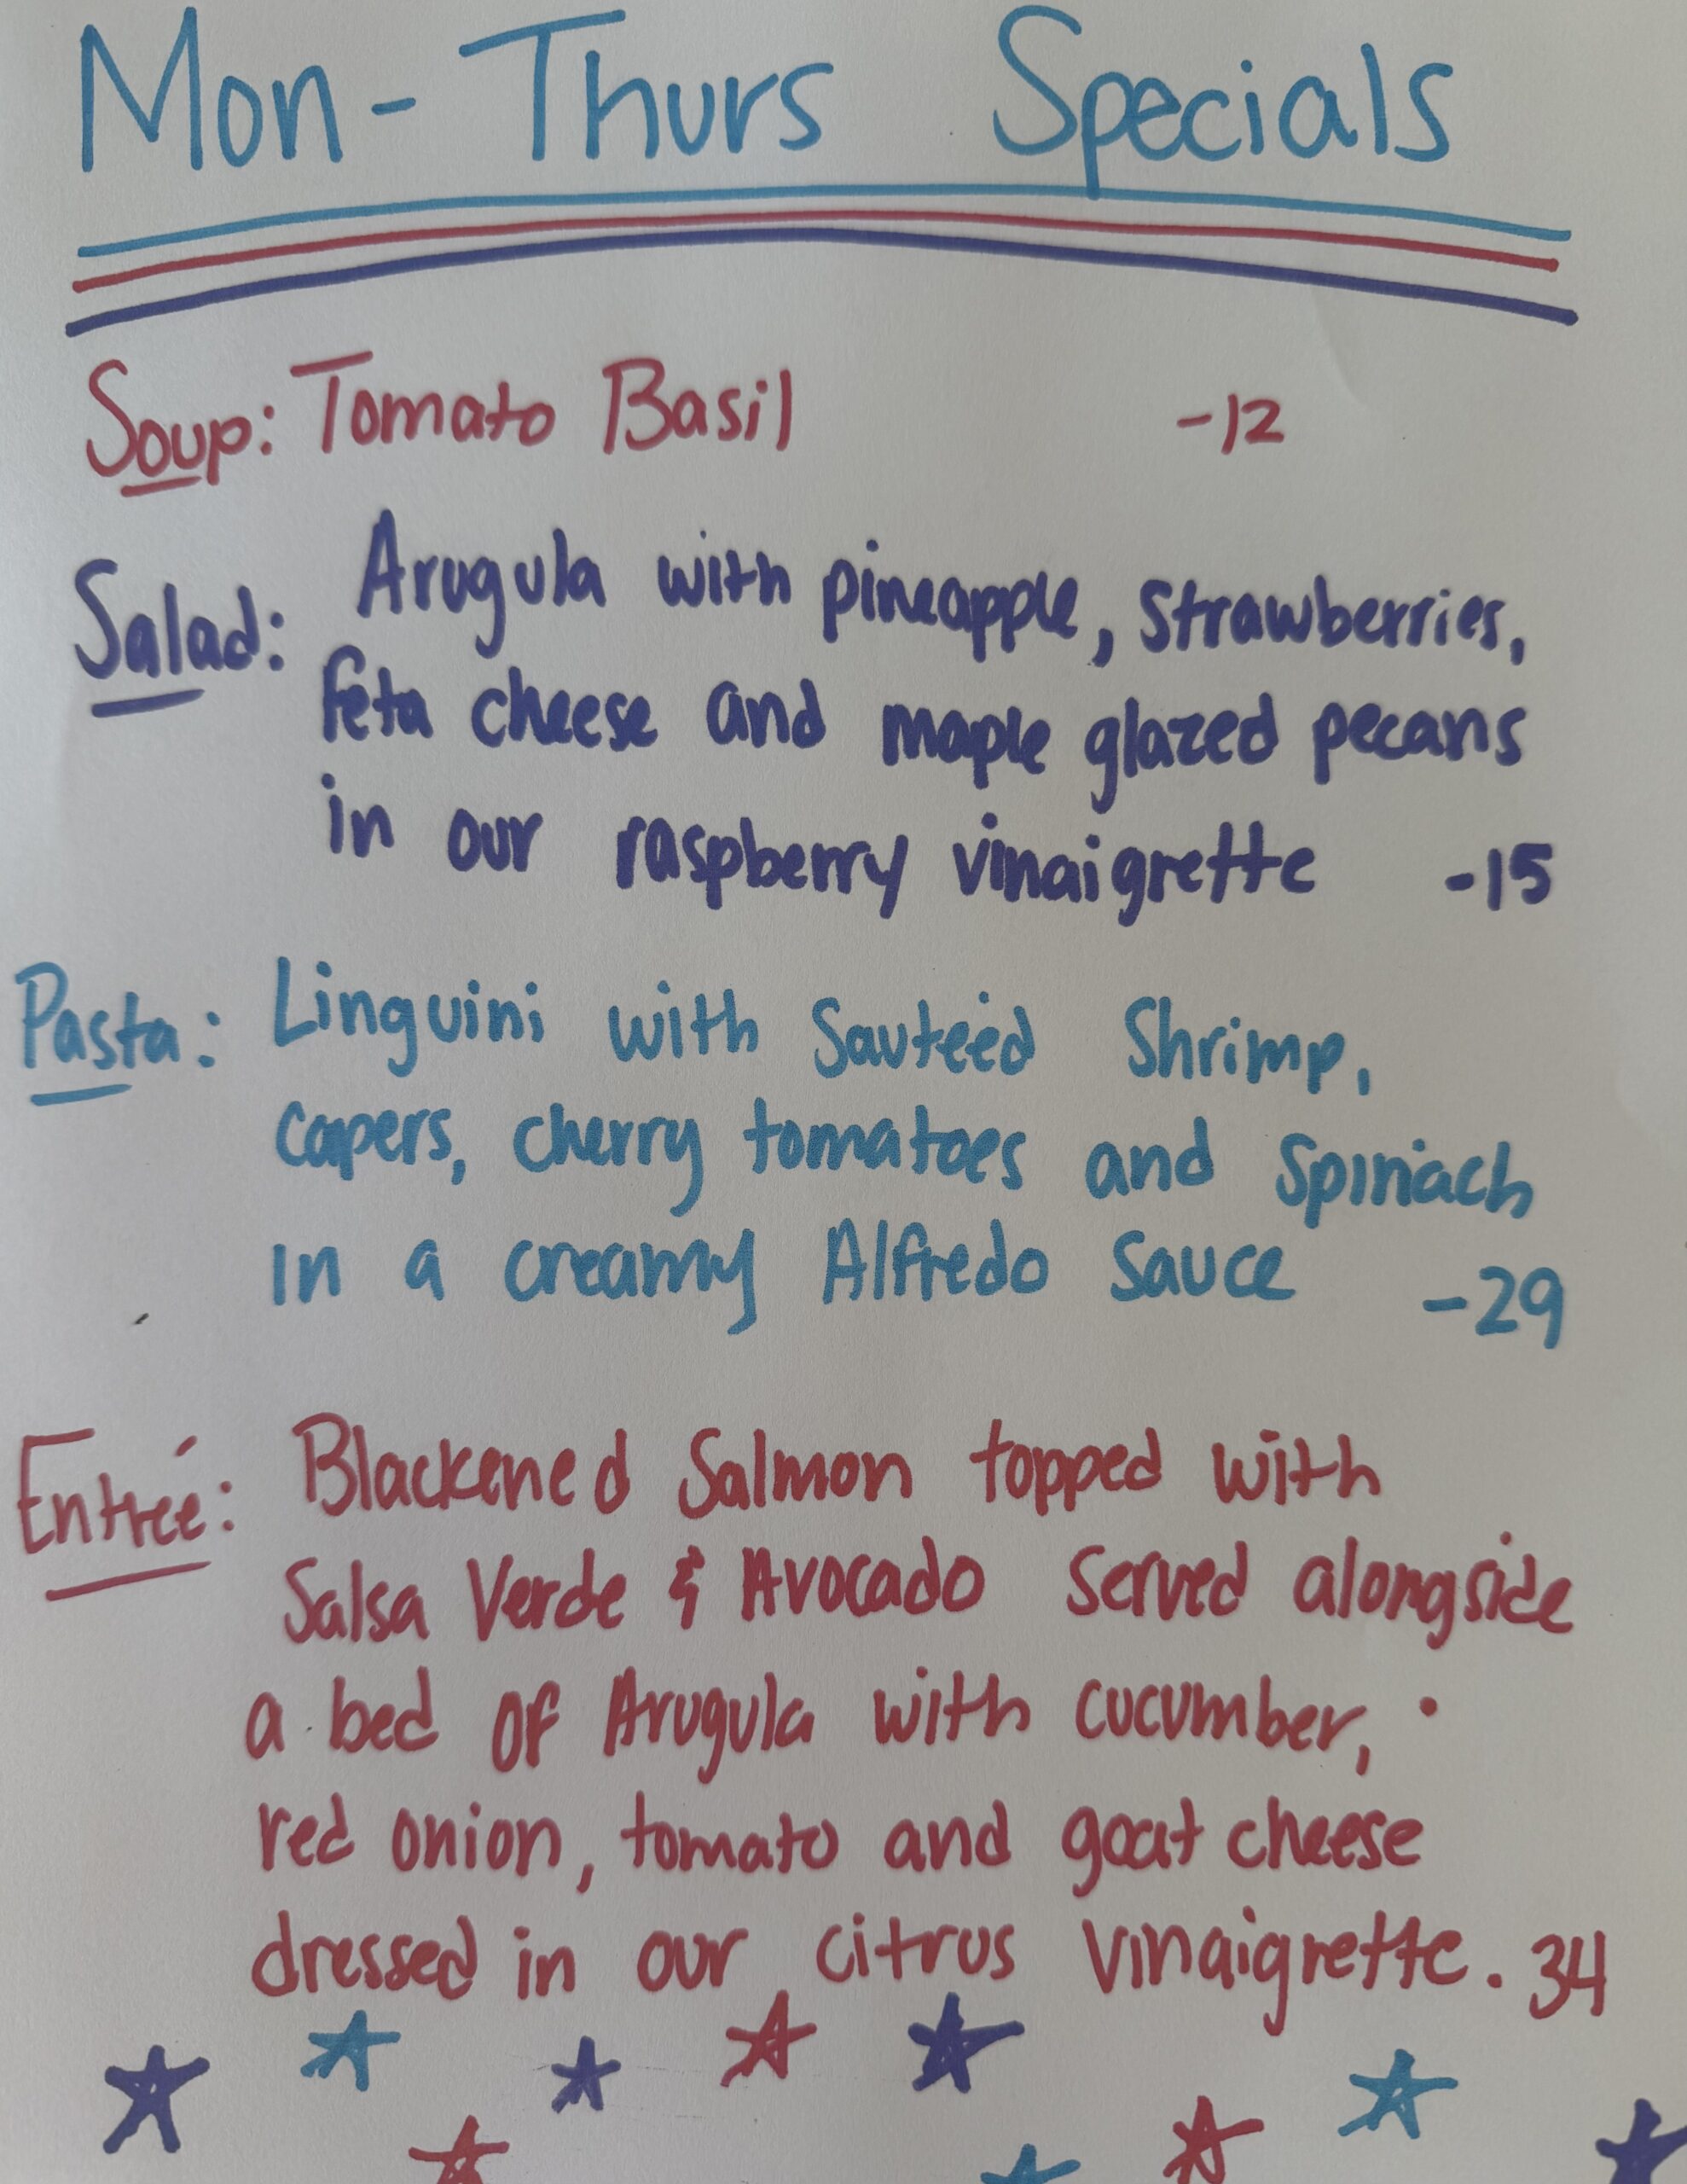 Mon - Thurs Specials
Soup: Tomato Basil -12
Salad: Arugula with pineapple, strawberries,
feta cheese and maple glazed pecans
in our raspberry vinaigrette -15
Pasta: Linguini with Sauteéd Shrimp,
capers, cherry tomatoes and Spinach
in a creamy Alfredo sauce -29
Entreé: Blackened Salmon topped with
Salsa Verde & Avocado served alongside
a bed of Arugula with cucumber,
red onion, tomato and goat cheese
dressed in our citrus vinaigrette. 34